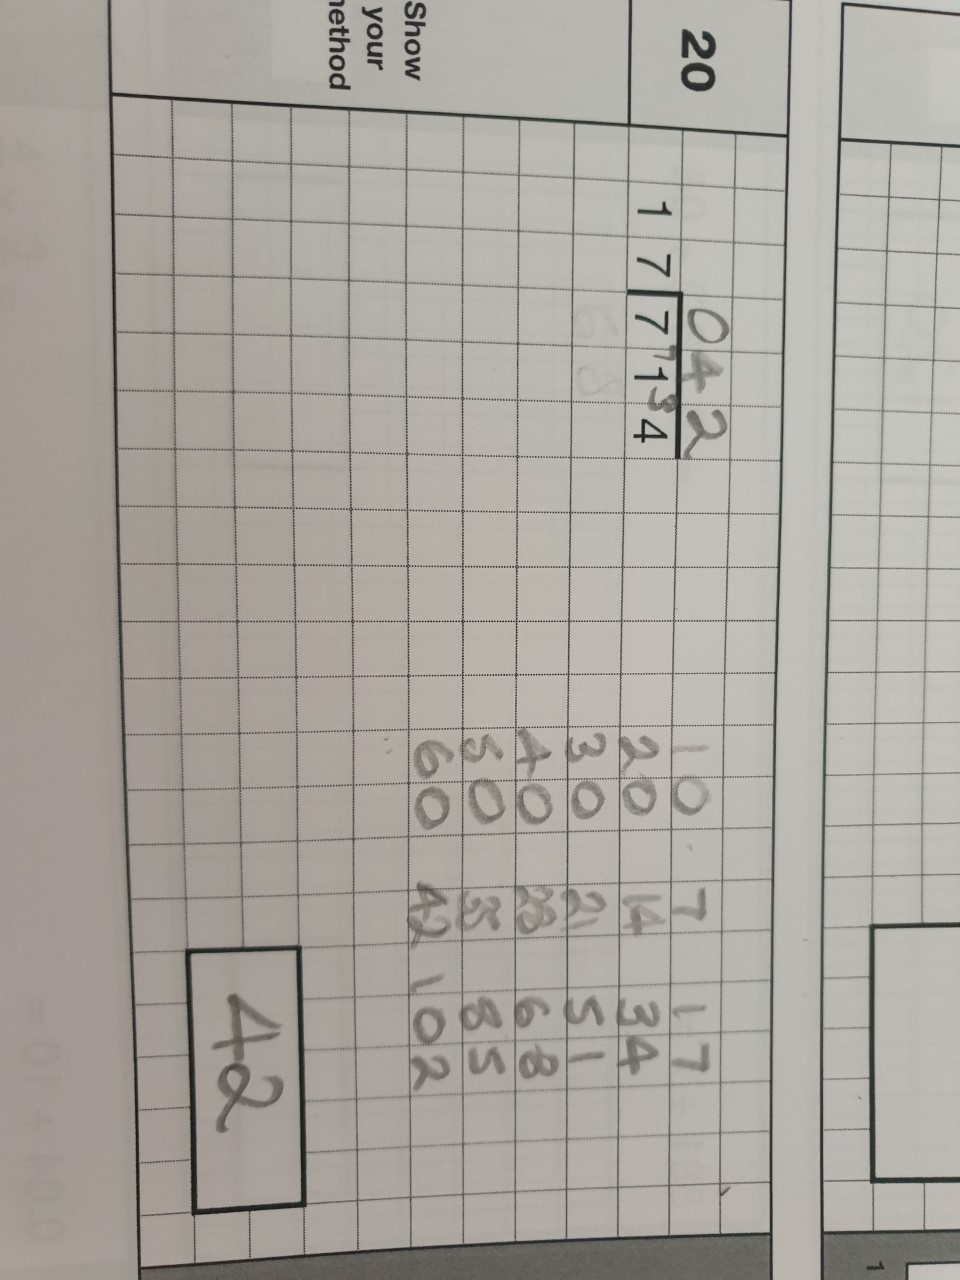 20
Show
your
method
042
17 7⁷1³4
10 7 17
20 14 34
30 21 51
40 28 68
50 35 85
60 42 102
42
1